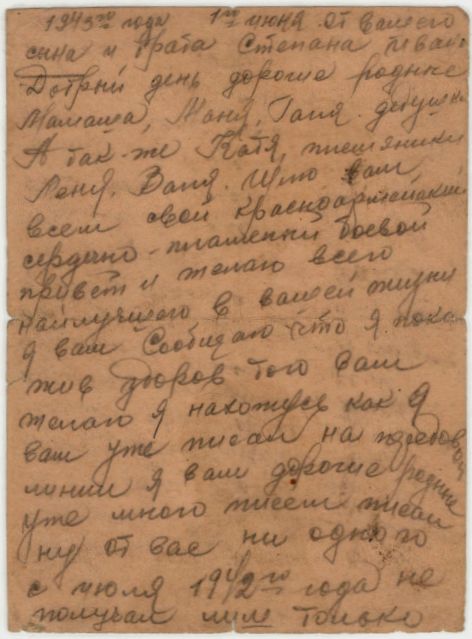 1943го года 1го июня от вашего
сина и брата Степана Иван
Добрий день дорогие родние
Мамаша, Маня, Галя. дедушка
А так-же Катя, племяники
Леня, Ваня. Шлю вам
всем свой красноармейский
сердечно-пламений боевой
привет и желаю всего
найлучшего в вашей жизни
я вам Сообщаю что я пока
жив здоров того вам
желаю я нахожусь как я
вам уже писал на передовой
линии я вам дорогие родние
уже много писем писал
ну от вас ни одного
с июля 1942го года не
получал лиш только